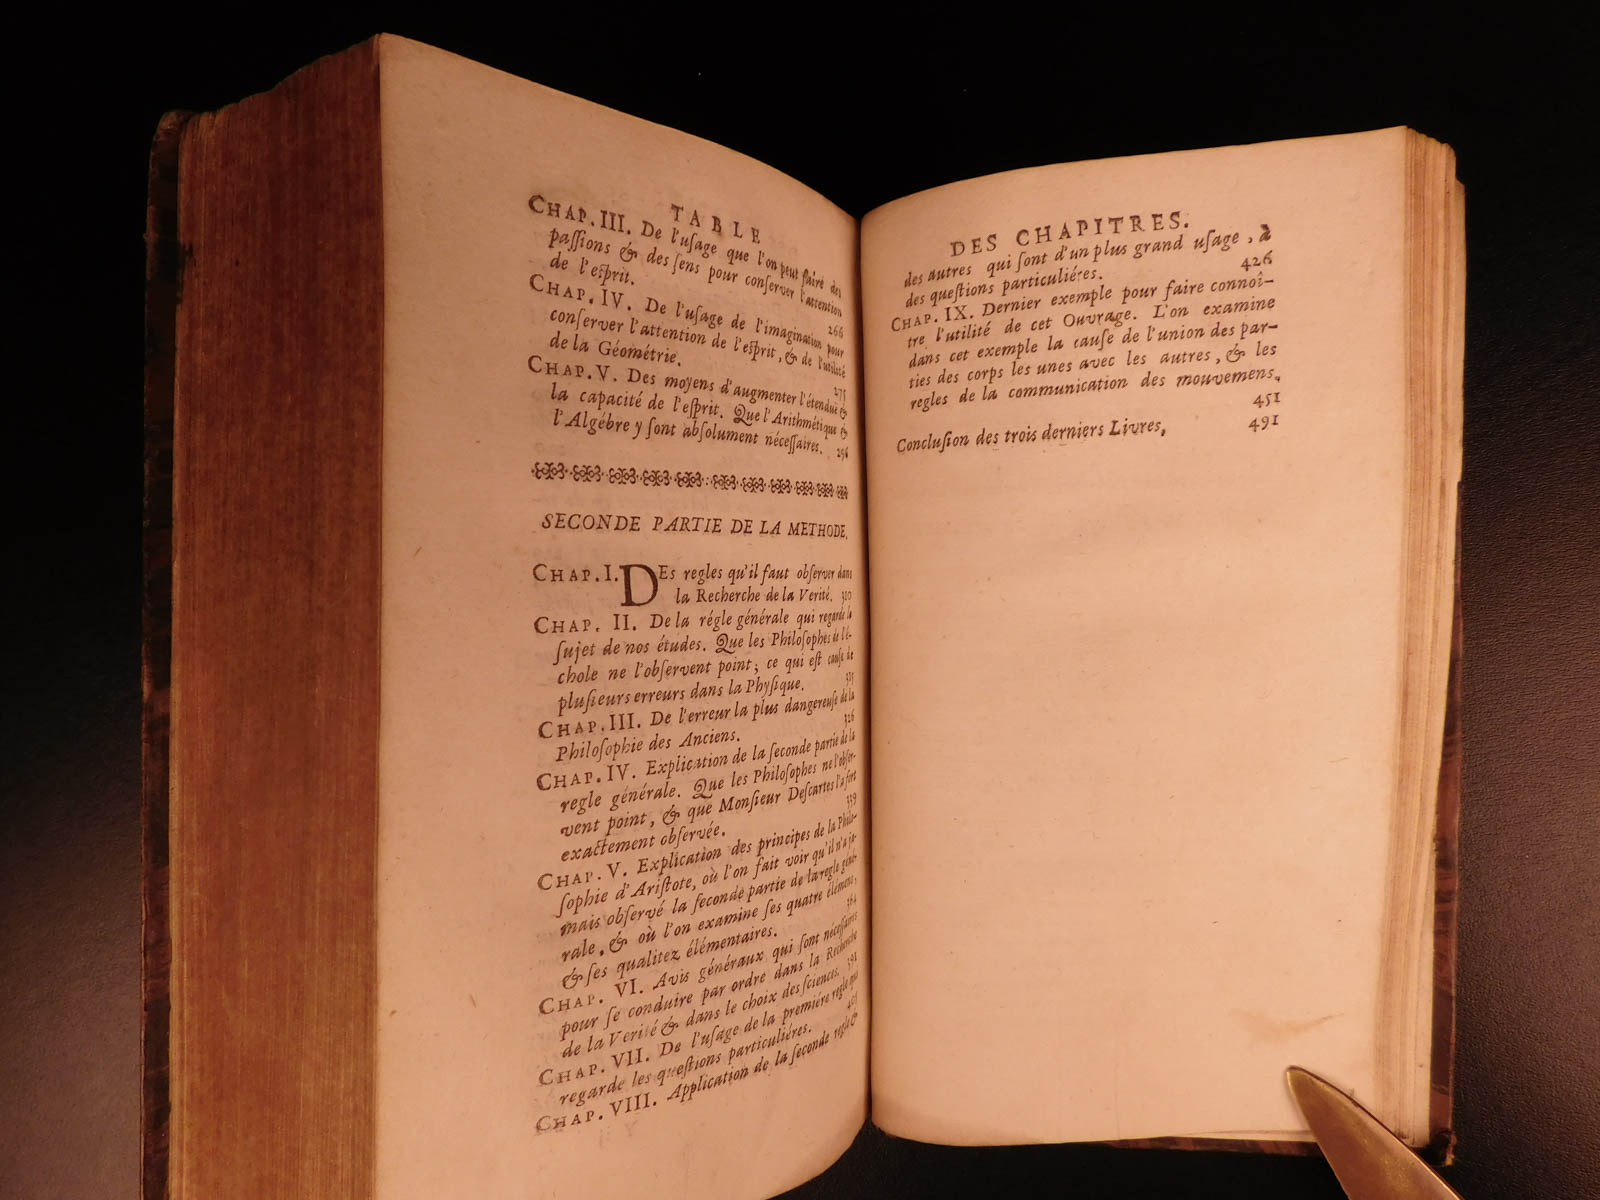 TABLE
CHAP. III. De l'uſage que l'on peut faire des
paſſions & des ſens pour conſerver l'attention
de l'eſprit. 266
CHAP. IV. De l'uſage de l'imagination pour
conſerver l'attention de l'eſprit, & de l'utilité
de la Géométrie. 275
CHAP. V. Des moyens d'augmenter l'étenduë &
la capacité de l'eſprit. Que l'Arithmétique &
l'Algébre y ſont abſolument néceſſaires. 296
SECONDE PARTIE DE LA METHODE.
CHAP. I. DEs regles qu'il faut obſerver dans
la Recherche de la Verité. 310
CHAP. II. De la régle générale qui regarde le
ſujet de nos études. Que les Philoſophes de l'é-
chole ne l'obſervent point; ce qui eſt cauſe de
pluſieurs erreurs dans la Phyſique. 315
CHAP. III. De l'erreur la plus dangereuſe de la
Philoſophie des Anciens. 326
CHAP. IV. Explication de la ſeconde partie de la
regle générale. Que les Philoſophes ne l'obſer-
vent point, & que Monſieur Deſcartes l'a fort
exactement obſervée. 339
CHAP. V. Explication des principes de la Philo-
ſophie d'Ariſtote, où l'on fait voir qu'il n'a ja-
mais obſervé la ſeconde partie de la regle géné-
rale, & où l'on examine ſes quatre élémens,
& ſes qualitez élémentaires. 364
CHAP. VI. Avis généraux qui ſont néceſſaires
pour ſe conduire par ordre dans la Recherche
de la Verité & dans le choix des ſciences. 391
CHAP. VII. De l'uſage de la premiére regle qui
regarde les queſtions particuliéres.
CHAP. VIII. Application de la ſeconde regle &
DES CHAPITRES.
des autres qui ſont d'un plus grand uſage, à
des queſtions particuliéres. 426
CHAP. IX. Dernier exemple pour faire connoî-
tre l'utilité de cet Ouvrage. L'on examine
dans cet exemple la cauſe de l'union des par-
ties des corps les unes avec les autres, & les
regles de la communication des mouvemens.
451
Concluſion des trois derniers Livres, 491